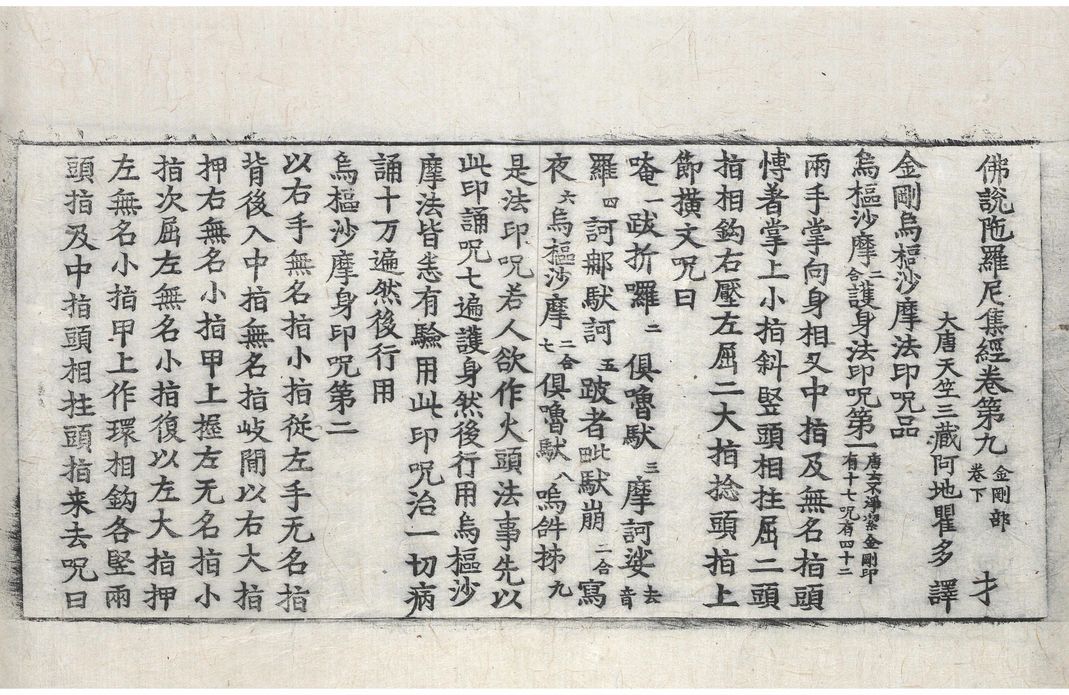 佛說陁羅尼集經卷第九 金剛部卷下 才
大唐天竺三藏阿地瞿多 譯
金剛烏樞沙摩法印呪品
烏樞沙摩二合護身法印呪第一 唐云不淨潔金剛印有十七呪有四十二
兩手掌向身相叉中指及無名指頭
愽著掌上小指斜竪頭相拄屈二頭
指相鈎右壓左屈二大指捻頭指上
節橫文呪曰
唵一跋折囉二俱嚕馱三摩訶娑去音
羅四訶那馱訶五跛者毗馱崩二合寫
夜六烏樞沙摩二合七俱嚕馱八嗚𤙖𣑘九
是法印呪若人欲作火頭法事先以
此印誦呪七遍護身然後行用烏樞沙
摩法皆悉有驗用此印呪治一切病
誦十万遍然後行用
烏樞沙摩身印呪第二
以右手無名指小指從左手无名指
背後入中指無名指岐間以右大指
押右無名小指甲上握左无名指小
指次屈左無名小指復以左大指押
左無名小指甲上作環相鈎各竪兩
頭指及中指頭相拄頭指来去呪曰